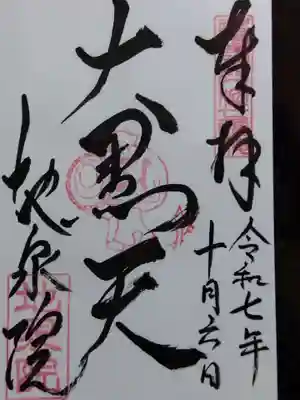 奉拝
令和七年
十月六日
大黒天
地泉院